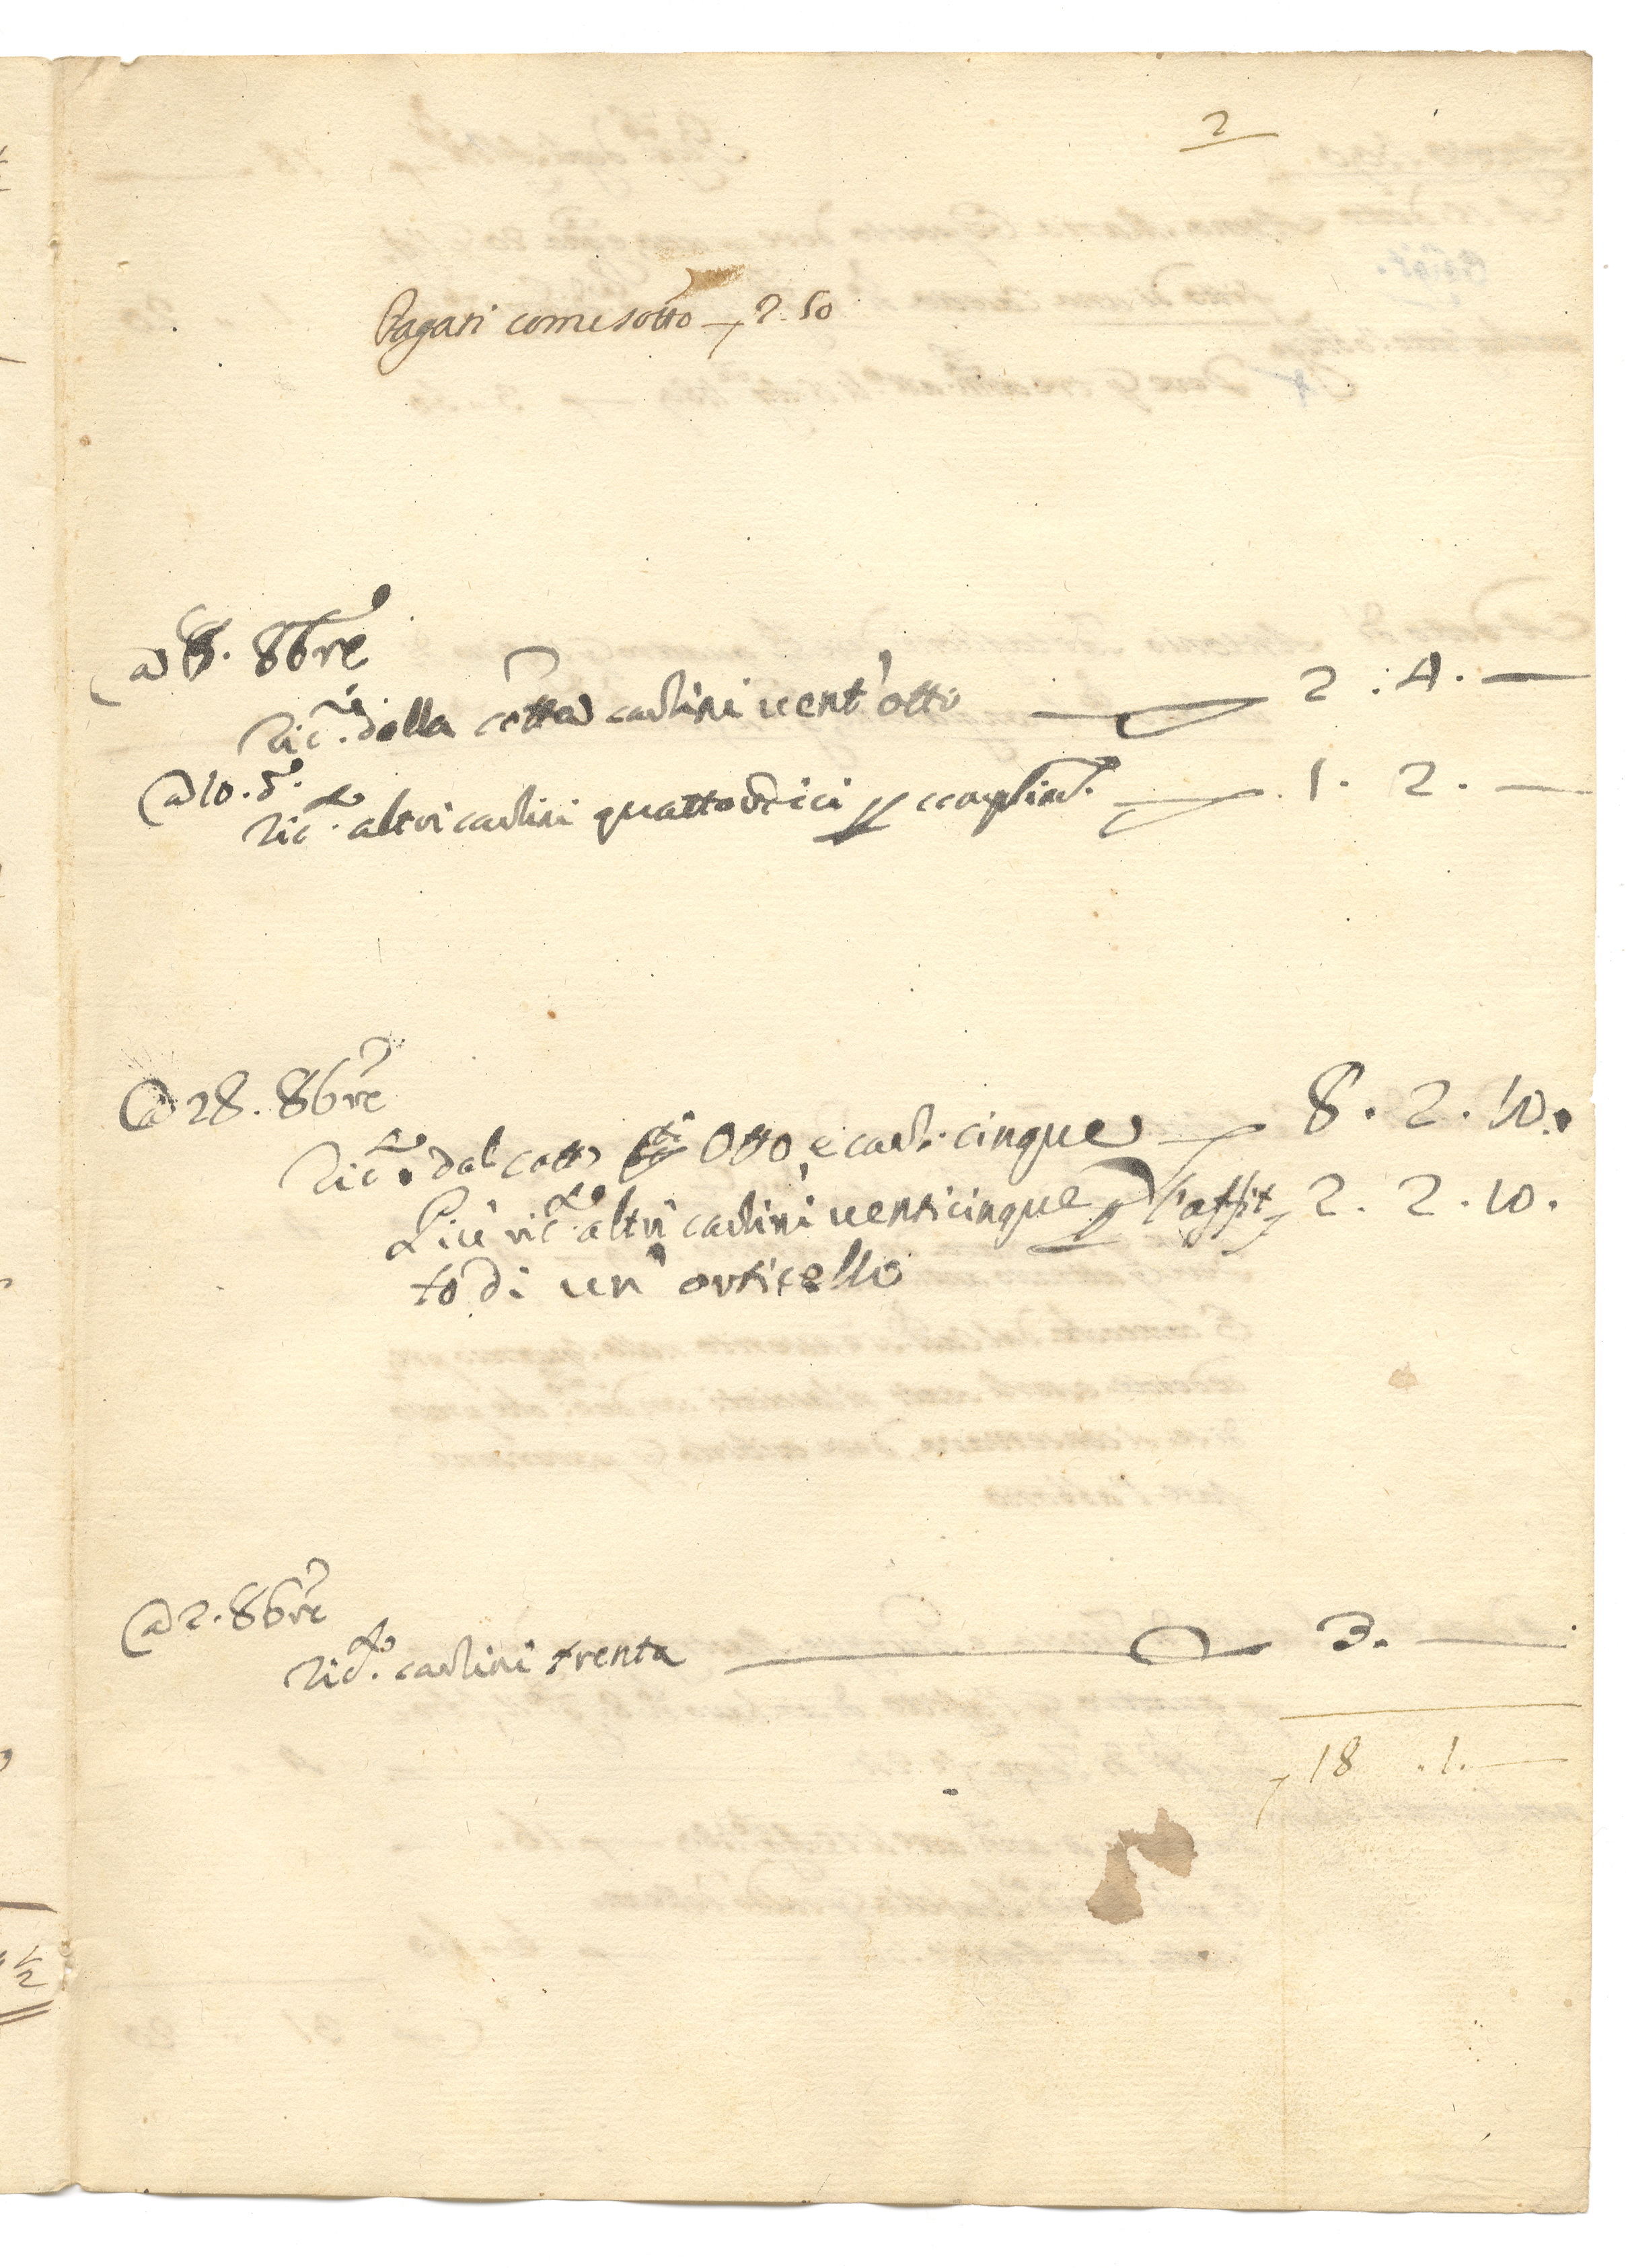 2
Pagati come sotto 2.50
a 8. 8bre
Ric. dalla cotta carlini vent'otto 2. 4. —
a 10. do.
Ric.to altri carlini quattordici p 1. 2. —
a 28. 8bre
Ric.to dal cotto Otto, e carl. cinque 8. 2. 10.
Più ric.to altri carlini venticinque p l'affit 2. 2. 10.
to di un orticello
a 2. 8bre
Ric.to carlini trenta 3. —
18 .1. —